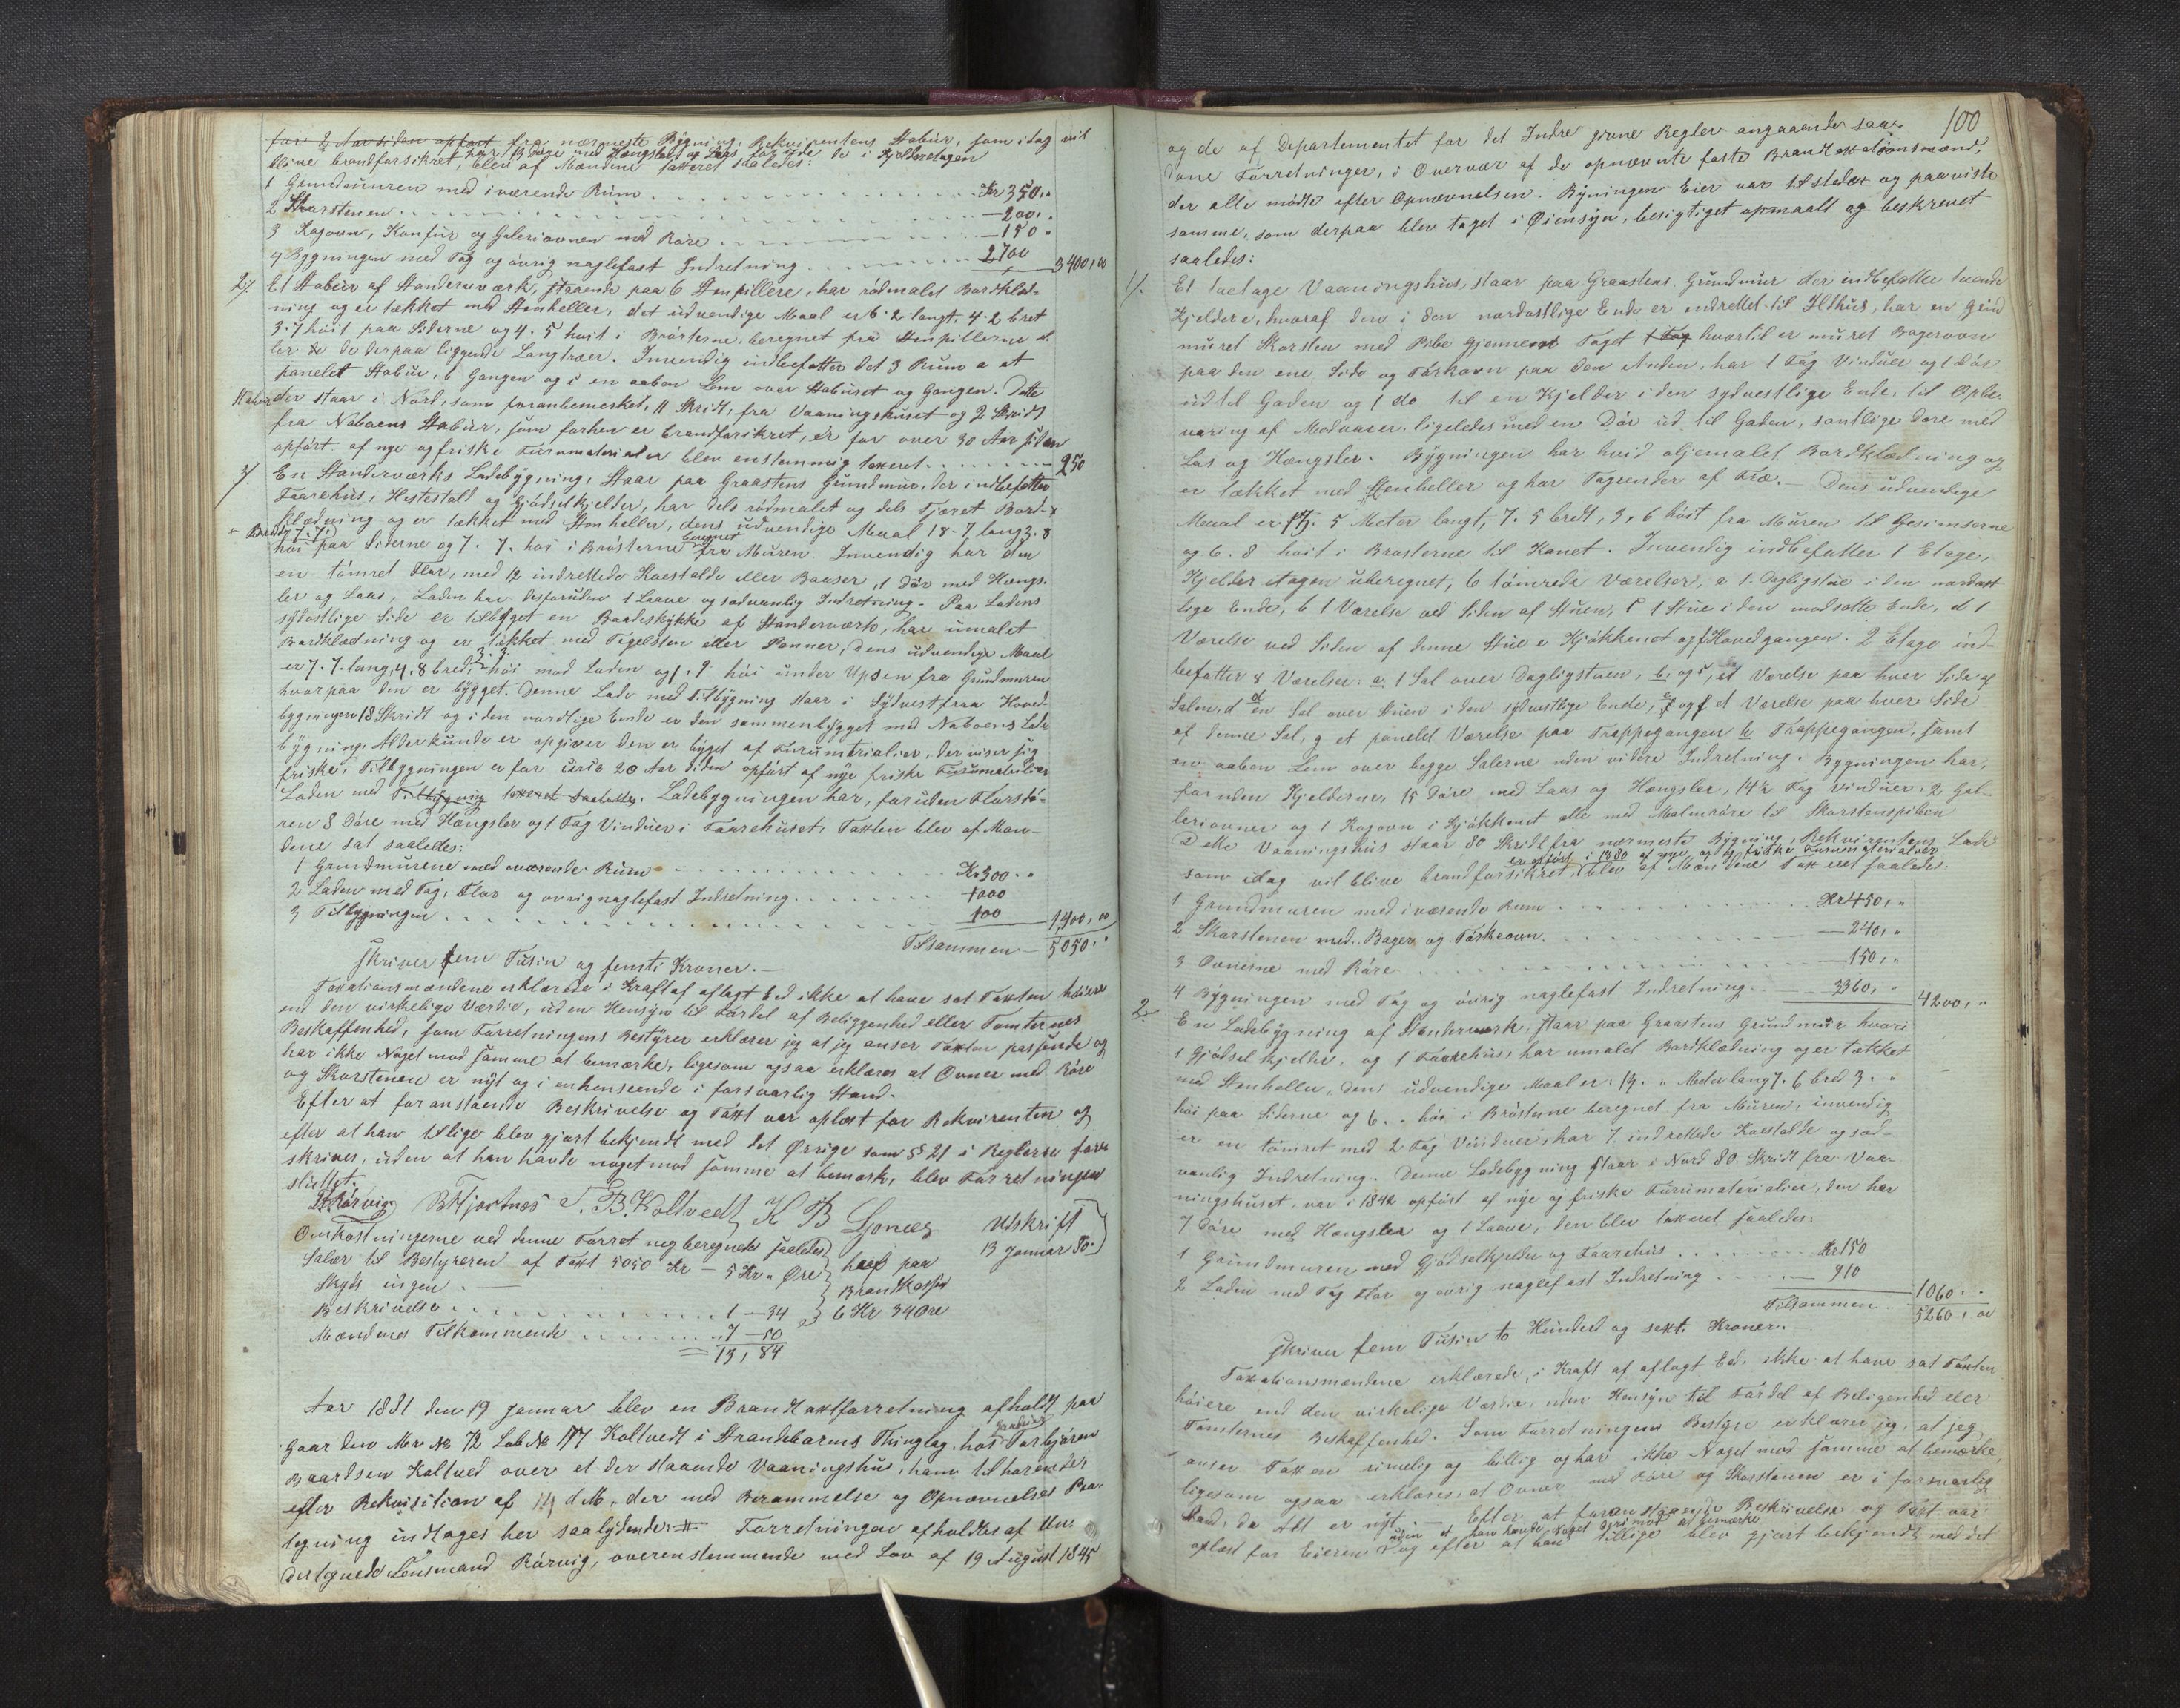 for 2 Aar siden opført fra nærmeste Bygning, Rekvirentens Stabur, som idag vil
blive brandforsikret, har 13 Døre med Hængsler og Laas foruden de i Kjelderetagen
blev af Mændene taxeret saaledes:
1 Grundmuren med iværende Rum . . . Kr 350. "
2 Skorstenen . . . — 200. "
3 Kogovn, Komfur og Galeriovnen med Røre . . . — 150 "
4 Bygningen med Tag og øvrig naglefast Indretning . . . 2700 3400,00
2/. Et Stabur af Standerværk, staaende paa 6 Stenpillere, har rødmalet Bordklæd-
ning og er tækket med Stenheller, det udvendige Maal er 6. 2 langt, 4. 2 bret
3. 7 høit paa Siderne og 4. 5 høit i Brøsterne, beregnet fra Stenpillerne el
ler de derpaa liggende Langtræer. Invendig indbefatter det 3 Rum a et
panelet Stabur, b Gangen og c en aaben Lem over Staburet og Gangen. Dette
Stabur der staar i Nord, som foranbemerket, 11 Skridt, fra Vaaningshuset og 2 Skridt
fra Naboens Stabur, som forhen er brandforsikret, er for over 30 Aar siden
opført af nye og friske Furumaterialer blev enstemmig taxeret . . . — 250
3/ En Standerværks Ladebygning, Staar paa Graastens Grundmur, der indbefatter
Faarehus, Hestestald og Gjødselkjelder, har dels rødmalet og dels Tjæret Bord-
klædning og er tækket med Stenheller, dens udvendige Maal 18. 7 lang 3. 8
Bredt 7. 7.
høi paa Siderne og 7. 7. høi i Brøsterne beregnet fra Muren. Invendig har den
en tømret Flor, med 12 indrettede Koestalde eller Baaser, 1 Dør med Hængs-
ler og Laas, Laden har desforuden 1 Laave og sædvanlig Indretning. Paa Ladens
sydøstlige Side er tilbygget en Baadeskykke af Standerværk, har umalet
Bordklædning og er tækket med Tegelsten eller Panner, Dens udvendige Maal
er 7. 7. lang, 4, 8 bred, 3. 3. høi mod Laden og 1. 9 høi under Upsen fra Grundmuren
hvorpaa den er bygget. Denne Lade med Tilbygning staar i Sydvest fraa Hoved-
bygningen 18 Skridt og i den nordlige Ende er den sammenbygget med Naboens Lade
bygning. Alderkunde er opgiver den er bygget af Furumaterialier, der viser sig
friske, Tilbygningen er for circa 20 Aar siden opført af nye friske Furumaterialier
Laden med Tilbygning taxeret saaledes. Ladebygningen har, foruden Florsdø-
ren 8 Døre med Hængsler og 1 Fag Vinduer i Faarehuset. Taxten blev af Mæn-
dene sat saaledes:
1 Grundmurene med iværende Rum . . . Kr 300. "
2 Laden med Tag, Flor og øvrig naglefast Indretning . . . 1000
3 Tilbygningen . . . 100 1,400,00
Tilsammen — 5050. "
Skriver fem Tusin og femti Kroner. —
Taxationsmændene erklærede i Kraft af aflagt Eed ikke at have sat Taxten høiere
end den virkelige Værdie, uden Hensyn til Fordel af Beliggenhed eller Tomternes
Beskaffenhed, som Forretningens Bestyrer erklærer jeg at jeg anser Taxten passende og
har ikke Noget mod samme at bemærke, ligesom ogsaa erklæres at Ovner med Røre
og Skorstenen er nyt og i enhenseende i forsvarlig Stand.
Efter at foranstaaende Beskrivelse og Taxt var oplæst for Rekvirenten og
efter at han tillige blev gjort bekjendt med det Øvrige som §§ 21 i Reglerne fore
skriver, uden at han havde noget mod samme at bemærk, blev Forretningen
sluttet.
Rørvig B Hjortnæs T. B. Koltvedt K B Ljonæs
Udskrift
13 Januar 80.
Omkostningerne ved denne Forretneg beregnede saaledes
Salær til Bestyreren af Taxt 5050 Kr — 5 Kr " Øre
Skyds ingen —
Beskrivelse . . . 1 — 34
Mændenes Tilkommende . . . 7 — 50
13, 84
hæft paa
Brandkassen
6 Kr 34 Øre
Aar 1881 den 19 Januar blev en Brandtaxtforretning afholdt paa
Gaar den Mtr No 72 Lab No 177 Koltvedt i Strandebarms Thinglag hos Gaardeier Torbjørn
Baardsen Koltved over et der staaende Vaaningshus, ham tilhørende
efter Rekvisition af d M, der med Berammelse og Opnævnelses Paa-
tegning indtages her saalydende: Forretningen afholdtes af Un-
dertegnede Lensmand Rørvig, overenstemmende med Lov af 19 August 1845
100
og de af Departementet for det Indre givne Regler angaaende saa-
dane Forretninger, i Overvær af de opnævnte faste Brandtaxationsmænd,
der alle mødte efter Opnævnelsen. Bygningen Eier var tilstede og paaviste
samme, som derpaa blev taget i Øiensyn, besigtiget opmaalt og beskrevet
saaledes:
1/. Et toetages Vaaningshus staar paa Graastens Grundmur der indbefatter tvende
Kjeldere, hvoraf den i den nordøstlige Ende er indrettet til Ildhus, har en Grund
muret Skorsten med Pibe gjennem Taget hvortil er muret Bagerovn
paa den ene Side og Tørkovn paa den Anden, har 1 Fag Vinduer og 1 Dør
ud til Gaden og 1 do til en Kjelder i den sydvestlige Ende, til Opbe-
varing af Madvarer, ligeledes med en Dør ud til Gaden, samtlige Døre med
Las og Hængsler. Bygningen har hvid oljemalet Bordklædning og
er tækket med Stenheller og har Tagrender af Træ. — Dens udvendige
Maal er 5 Meter langt, 7. 5 bredt, 3, 6 høit fra Muren til Gesimserne
og 6. 8 høit i Brøsterne til Kanet. Invendig indbefatter 1 Etage,
Kjelder etagen uberegnet, 6 tømrede Værelser, a 1 Dagligstue i den nordøst
lige Ende, b 1 Værelse ved Siden af Stuen, c 1 Stue i den modsatte Ende, d 1
Værelse ved Siden af denne Stue e Kjøkkenet og f Hovedgangen. 2 Etage ind-
befatter 8 Værelser: a 1 Sal over Dagligstuen, b. og c, et Værelse paa hver Side af
Salen, d en Sal over Stuen i den sydvestlige Ende, e og f et Værelse paa hver Side
af denne Sal, g et panelet Værelse paa Trappegangen h Trappegangen, samt
en aaben Lem over begge Salerne uden videre Indretning. Bygningen har,
foruden Kjelderne, 15 Døre med Laas og Hængsler, 14½ Fag Vinduer, 2 Gal-
leriovner og 1 Kogovn i Kjøkkenet alle med Malmrøre til Skorstenspiben
Dette Vaaningshus staar 80 Skridt fra nærmeste Bygning, Rekvirentens Lade
som idag vil blive brandforsikret, er opført i 1880 af nye og friske Furumaterialier
blev af Mændene Taxeret saalede.
1 Grundmuren med iværende Rum . . . Kr 450, "
2 Skorstenen med Bager og Tørkeovn. . . . — 240, "
3 Ovnerne med Røre . . . — 150, "
4 Bygningen med Tag og øvrig naglefast Indretning . . . 3360, " 4200, "
2 En Ladebygning af Standerværk, staar paa Graastens Grundmur hvori
1 Gjødselkjelder, og 1 Faarehus, har umalet Bordklædning og er tækket
med Stenheller, dens udvendige Maal er: 14. " Meter lang 7. 6 bred 3. "
høi paa Siderne og 6. " høi i Brøsterne beregnet fra Muren, invendig
er en tømret med 2 Fag Vinduer, har 7 indrettede Koestalde og sæd-
vanlig Indretning. Denne Ladebygning staar i Nord 80 Skridt fra Vaa-
ningshuset, var i 1842 opført af nye og friske Furumaterialier, den har
7 Døre med Hængsler og 1 Laave, den blev taxeret saaledes:
1 Grundmuren med Gjødselkjelder og Faarehus . . . Kr 150
2 Laden med Tag Flor og øvrig naglefast Indretning . . . — 910 1060. "
Tilsammen 5260, 00
Skriver fem Tusin to Hundred og sexti Kroner. —
Taxationsmendene erklærede, i Kraft af aflagt Eed, ikke at have sat Taxten
høiere end den virkelige Værdie, uden Hensyn til Fordel af Beligenhed eler
Tomternes Beskaffenhed. Som Forretningens Bestyre erklærer jeg, at jeg
anser Taxten rimelig og billig og har ikke Noget mod samme at bemærke,
ligesom ogsaa erklæres, at Ovner med Røre og Skorstenen er i forsvarlig
Stand, da Alt er nyt. — Efter at foranstaaende Beskrivelse og Taxt var
oplæst for Eieren uden at han havde Noget derimod at bemærke
og efter at han tillige blev gjort bekjendt med det